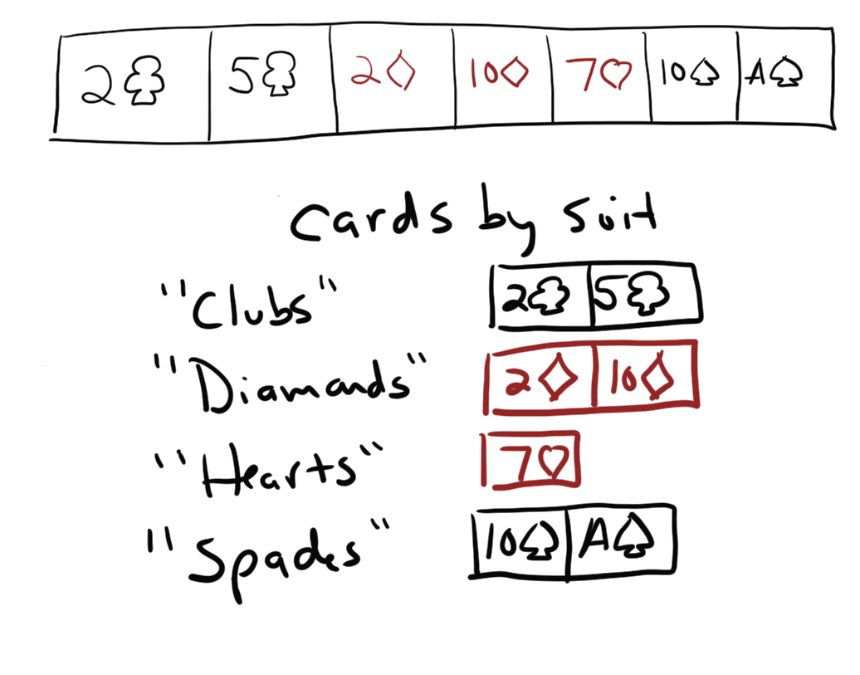 2♧ 5♧ 2♢ 10♢ 7♡ 10♤ A♤
Cards by Suit
"Clubs" 2♧ 5♧
"Diamonds" 2♢ 10♢
"Hearts" 7♡
"Spades" 10♤ A♤